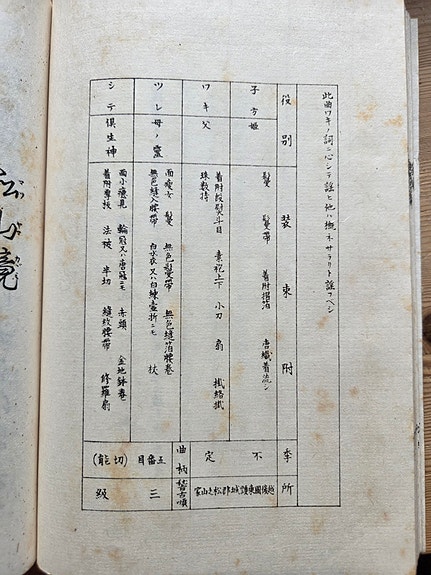 此曲ワキノ詞ニ心シテ謡ヒ他ハ概ネサラリト謡フベシ
役別
装束附
季
所
子方 姫
鬘 鬘帯 着附摺箔 唐織着流シ
ワキ 父
着附段熨斗目 素袍上下 小刀 扇 掛絡掛
珠数持
不定
越後國東頸城郡松之山家
ツレ 母ノ霊
面痩女 鬘 無色鬘帯 無色縫箔腰巻
無色縫入腰帯 白水衣又ハ白練壷折ニモ 杖
シテ 倶生神
面小癋見 輪冠又ハ唐冠ニモ 赤頭 金地鉢巻
着附厚板 法被 半切 縫紋腰帯 修羅扇
曲柄
五番目
(切能)
稽古順
三
級
松山鏡